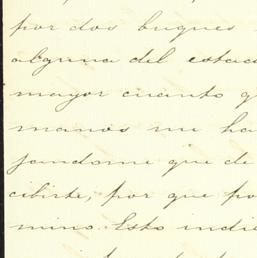 por dos buques
alguna del estad
mayor cuanto q
manos me ha
jandome que de
cibirte, por que po
mino. Esto indi